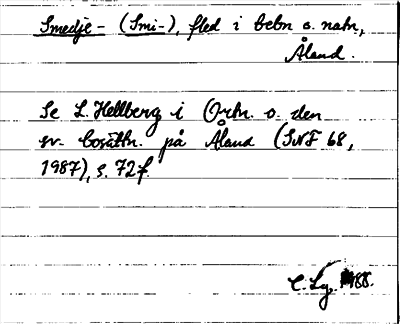 Smedje- (Smi-), fled i bebn o. natn,
Åland.
Se L. Hellberg i Ortn. o. den
sv. bosättn. på Åland (SNF 68,
1987), s. 72f.
C. Lg. 1988.